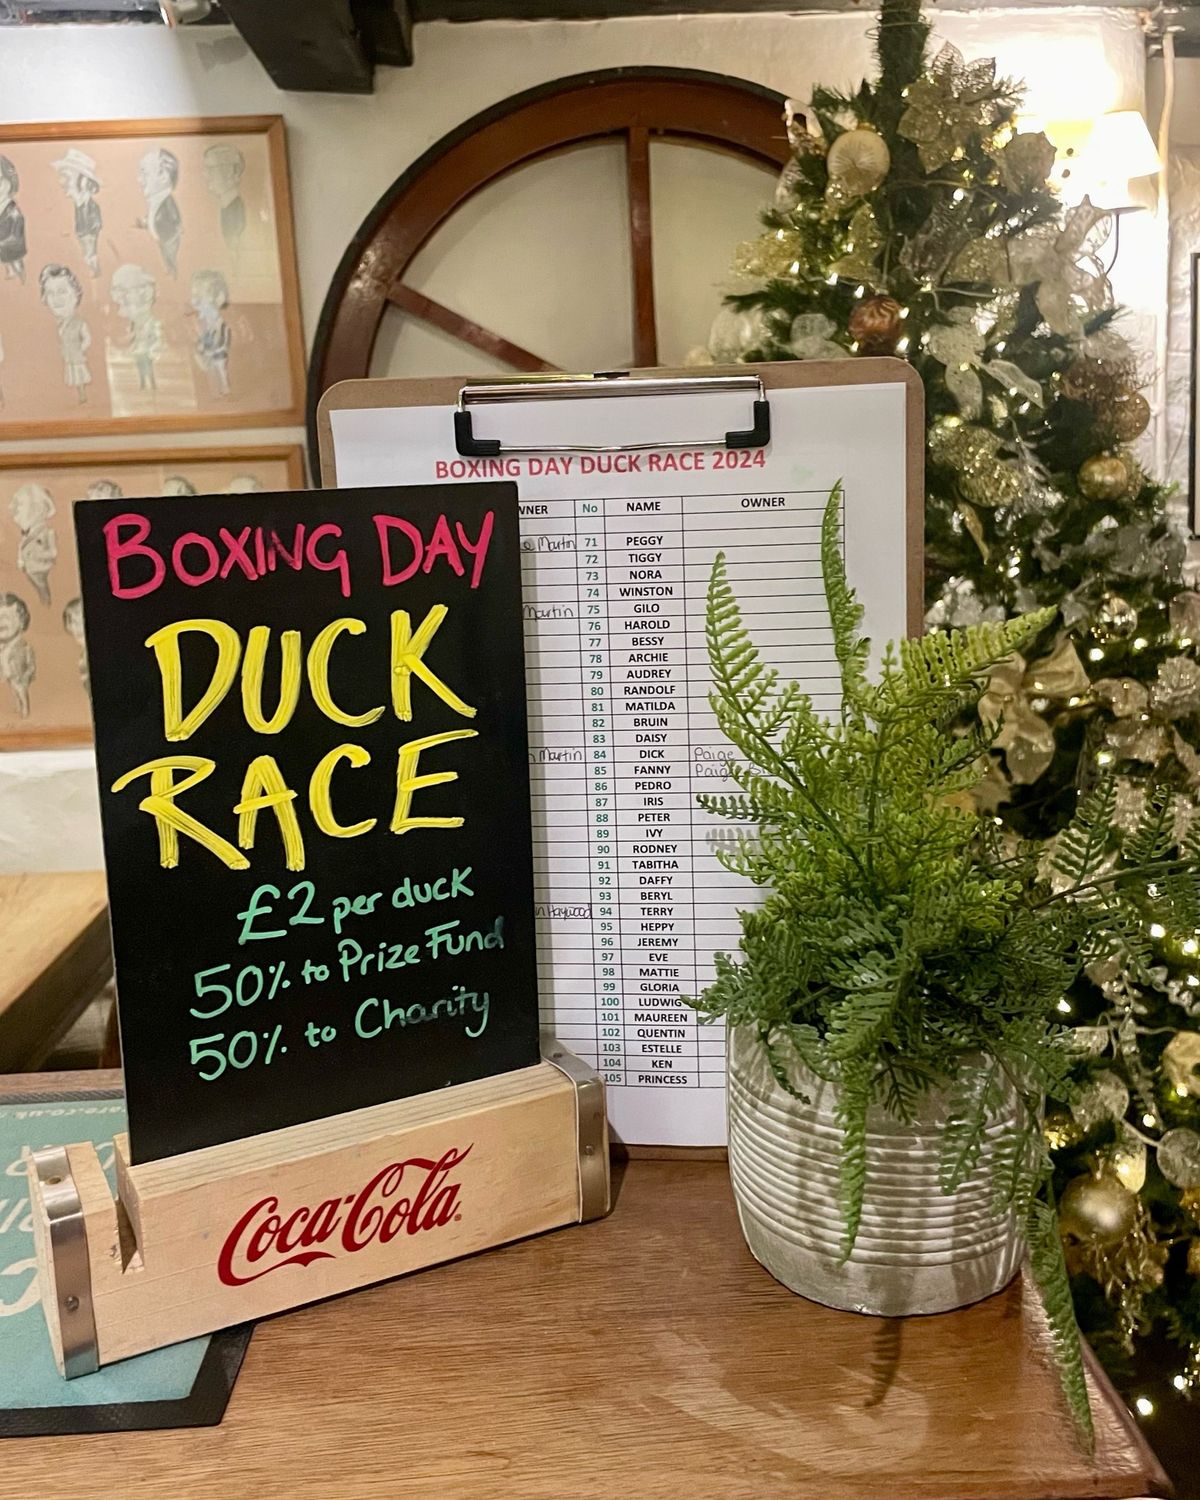 BOXING DAY
DUCK
RACE
£2 per duck
50% to Prize Fund
50% to Charity
Coca-Cola
BOXING DAY DUCK RACE 2024
No NAME OWNER
Martin 71 PEGGY
72 TIGGY
73 NORA
74 WINSTON
Martin 75 GILO
76 HAROLD
77 BESSY
78 ARCHIE
79 AUDREY
80 RANDOLF
81 MATILDA
82 BRUIN
83 DAISY
Martin 84 DICK Paige
85 FANNY Paige
86 PEDRO
87 IRIS
88 PETER
89 IVY
90 RODNEY
91 TABITHA
92 DAFFY
93 BERYL
Haywood 94 TERRY
95 HEPPY
96 JEREMY
97 EVE
98 MATTIE
99 GLORIA
100 LUDWIG
101 MAUREEN
102 QUENTIN
103 ESTELLE
104 KEN
105 PRINCESS